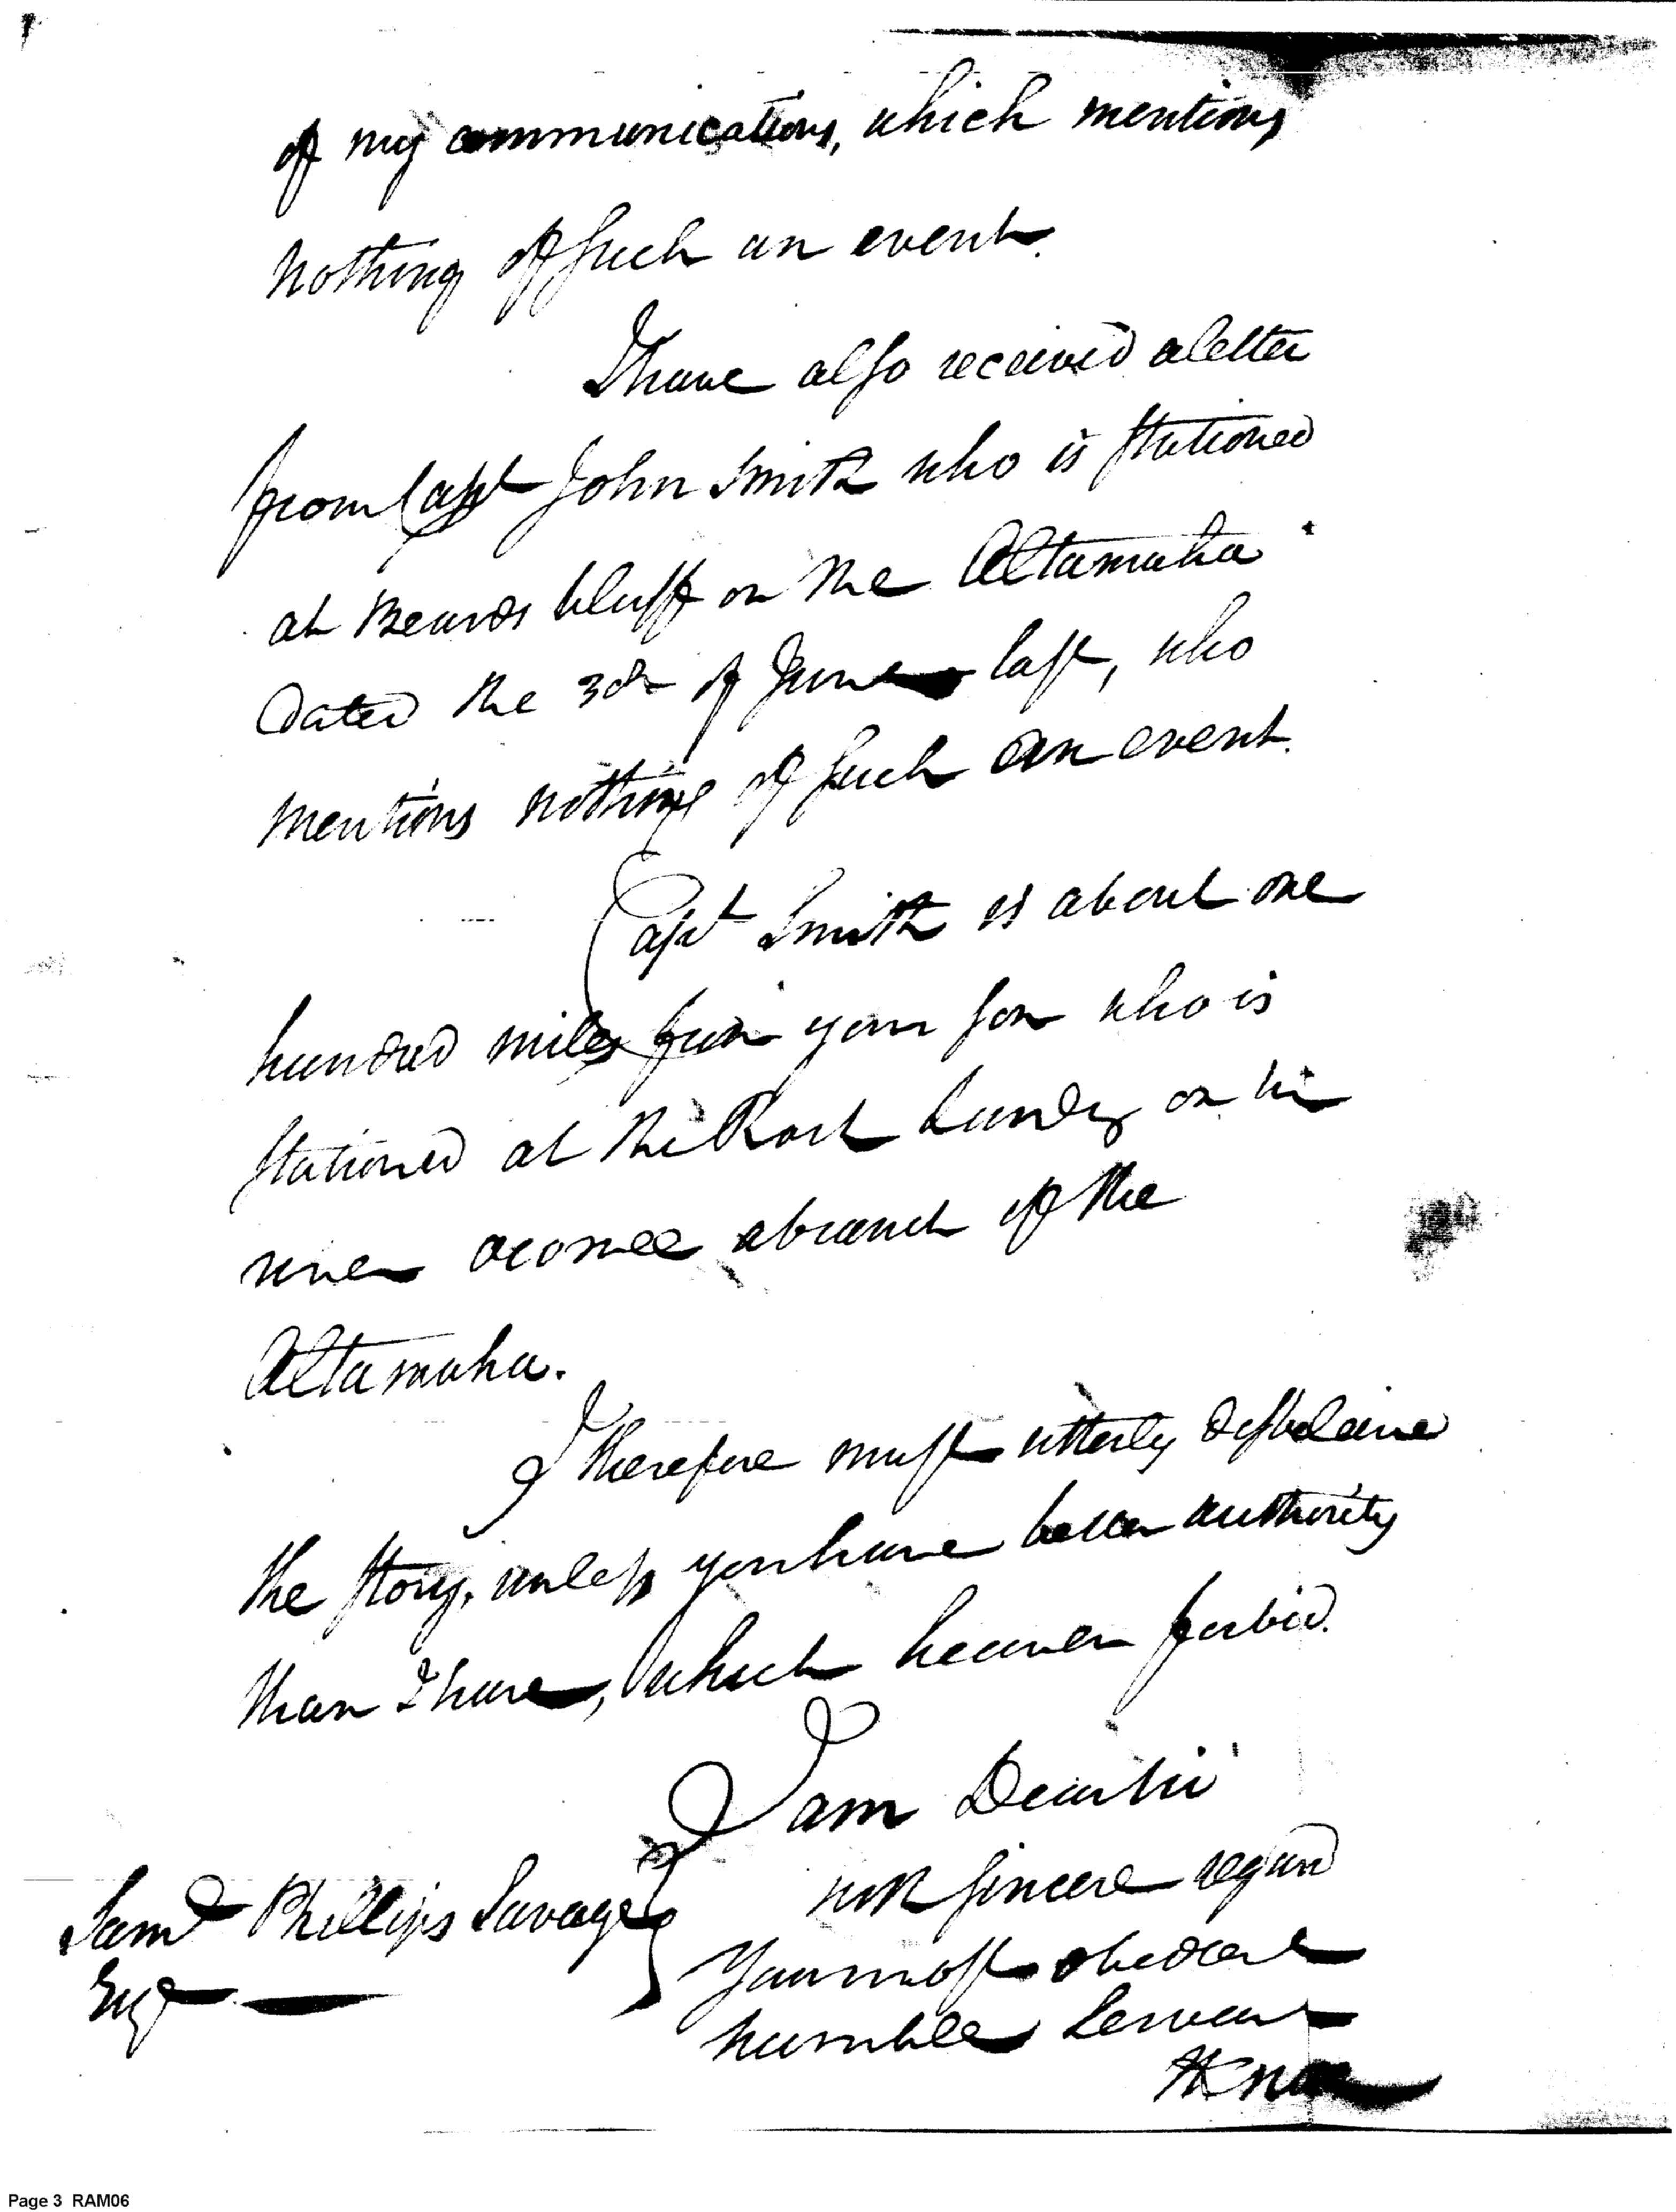 of my communications, which mentions
nothing of such an event.
I have also received a letter
from Capt John Smith who is stationed
at Beards bluff on the Altamaha
dated the 3d of June last, who
mentions nothing of such an event.
Capt Smith is about one
hundred miles from your son who is
stationed at the Rock Landg on the
river oconee a branch of the
Altamaha.
I therefore must utterly
the story, unless you have better authority
than I have, which heaven forbid.
I am Dear sir
with sincere regard
Your most obedient
humble Servant
HKnox
Saml Phillips Savage
Esqr
Page 3 RAM06